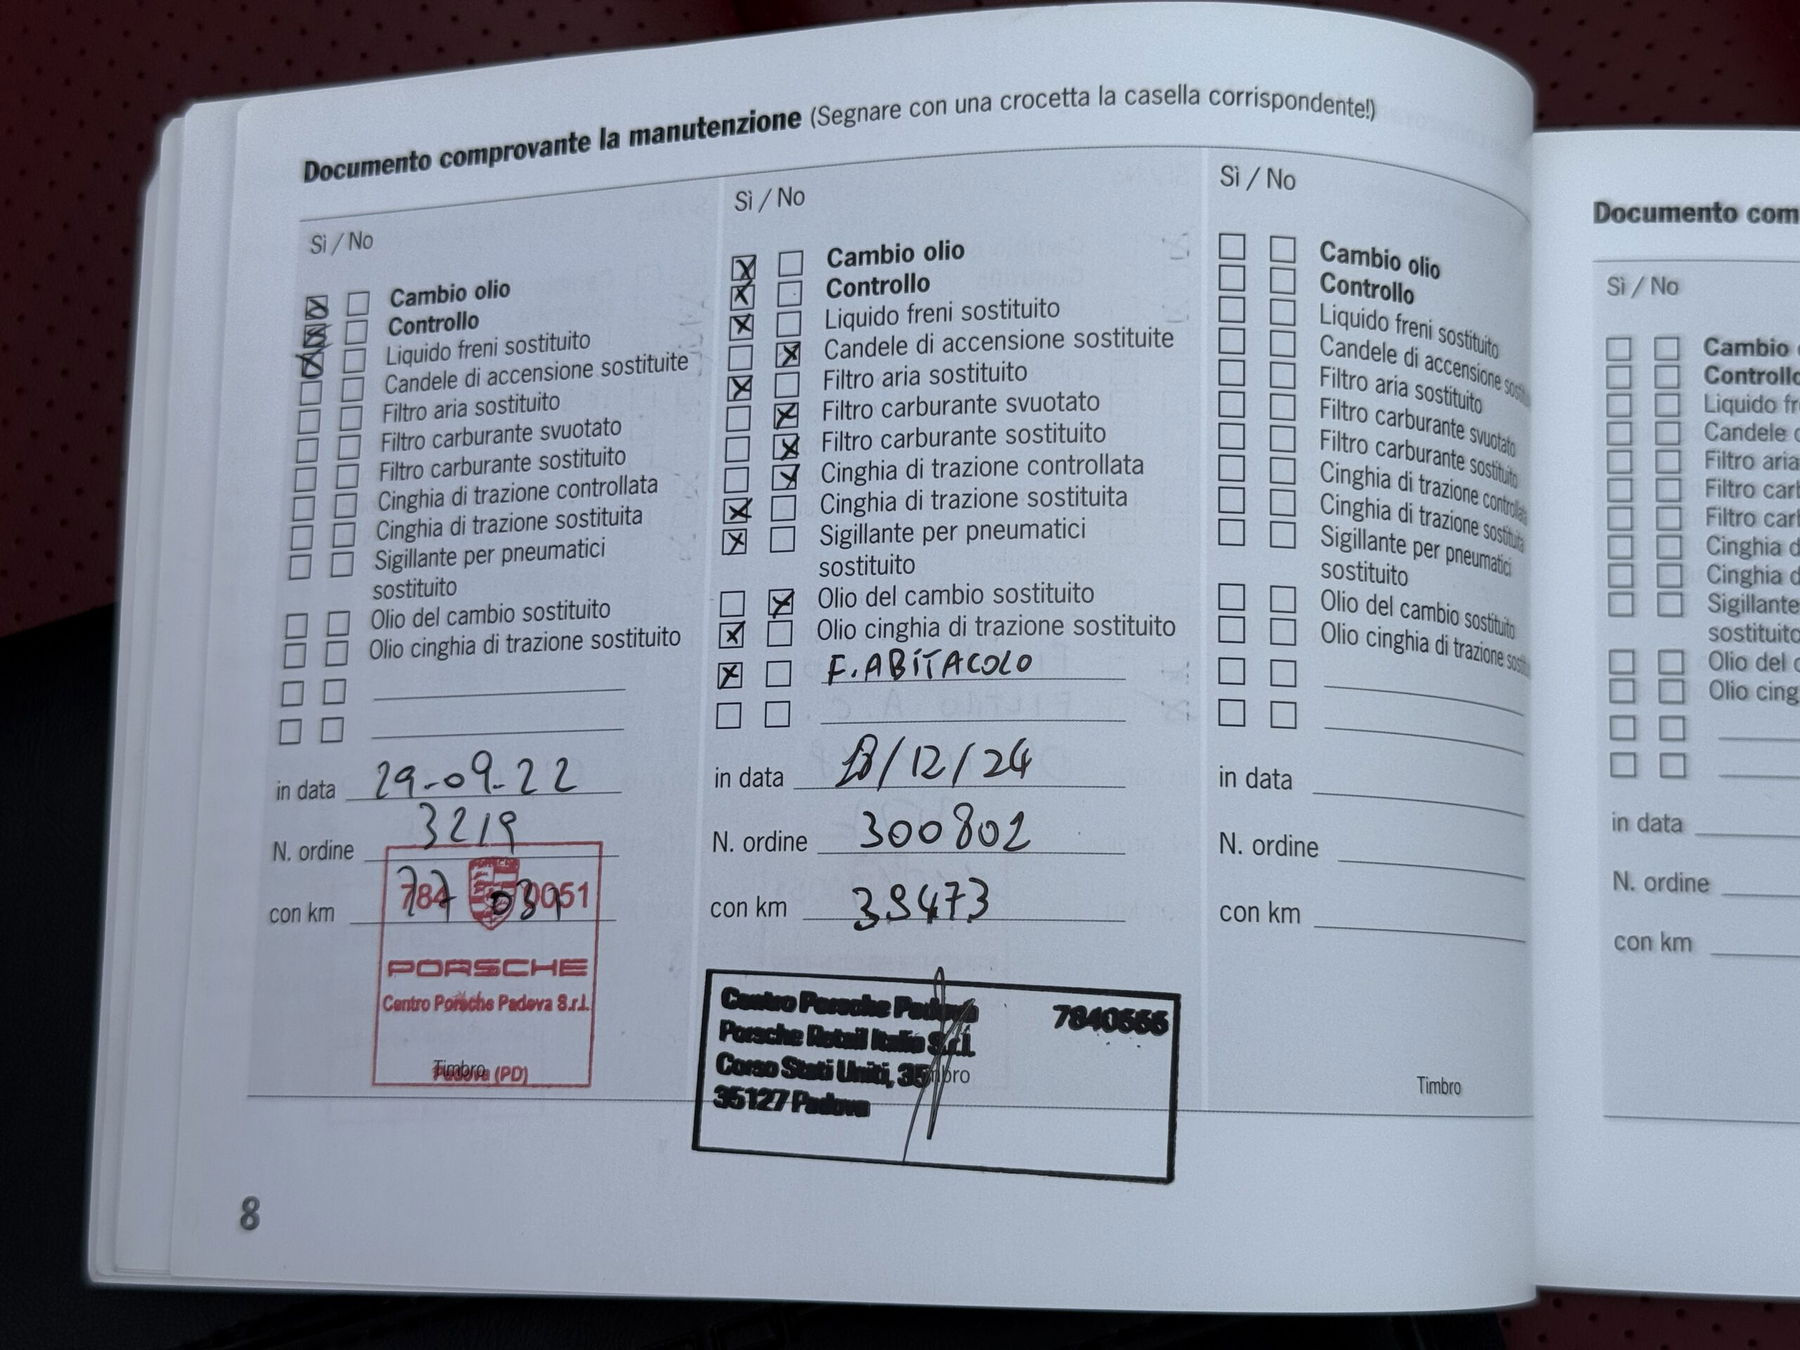 Documento comprovante la manutenzione (Segnare con una crocetta la casella corrispondente!)
Sì / No
Cambio olio
Controllo
Liquido freni sostituito
Candele di accensione sostituite
Filtro aria sostituito
Filtro carburante svuotato
Filtro carburante sostituito
Cinghia di trazione controllata
Cinghia di trazione sostituita
Sigillante per pneumatici
sostituito
Olio del cambio sostituito
Olio cinghia di trazione sostituito
in data 29-09-22
N. ordine 3219
con km
PORSCHE
Centro Porsche Padova S.r.l.
Timbro
Padova (PD)
Sì / No
Cambio olio
Controllo
Liquido freni sostituito
Candele di accensione sostituite
Filtro aria sostituito
Filtro carburante svuotato
Filtro carburante sostituito
Cinghia di trazione controllata
Cinghia di trazione sostituita
Sigillante per pneumatici
sostituito
Olio del cambio sostituito
Olio cinghia di trazione sostituito
F. ABITACOLO
in data /12/24
N. ordine 300802
con km 39473
Centro Porsche Padova 7840555
Porsche Retail Italia S.r.l.
Corso Stati Uniti, 35
35127 Padova
Sì / No
Cambio olio
Controllo
Liquido freni sostituito
Candele di accensione
Filtro aria sostituito
Filtro carburante svuotato
Filtro carburante sostituito
Cinghia di trazione
Cinghia di trazione sostituita
Sigillante per pneumatici
sostituito
Olio del cambio sostituito
Olio cinghia di trazione
in data
N. ordine
con km
Timbro
8
Documento com
Sì / No
Cambio
Controllo
Liquido fr
Candele
Filtro aria
Filtro carb
Filtro carb
Cinghia d
Cinghia d
Sigillante
sostituito
Olio del
Olio cing
in data
N. ordine
con km